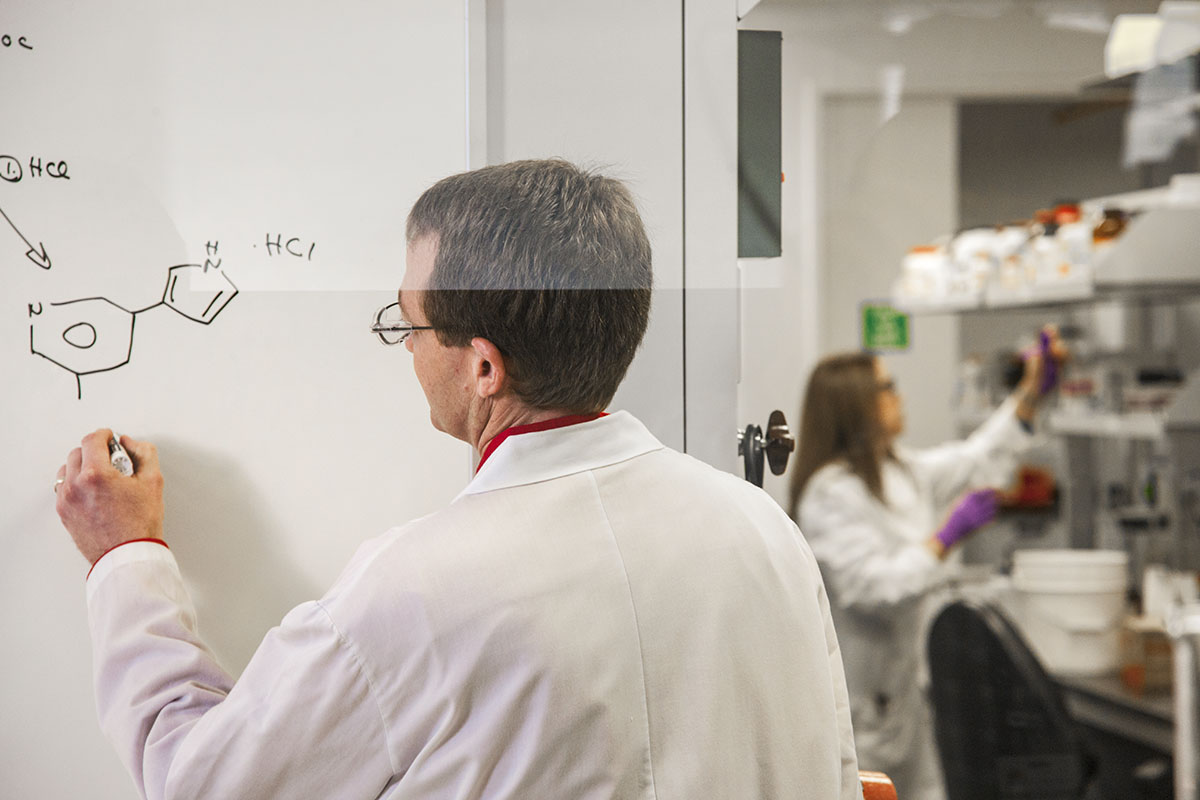 oc
1. HCl
H
N
·HCl
N